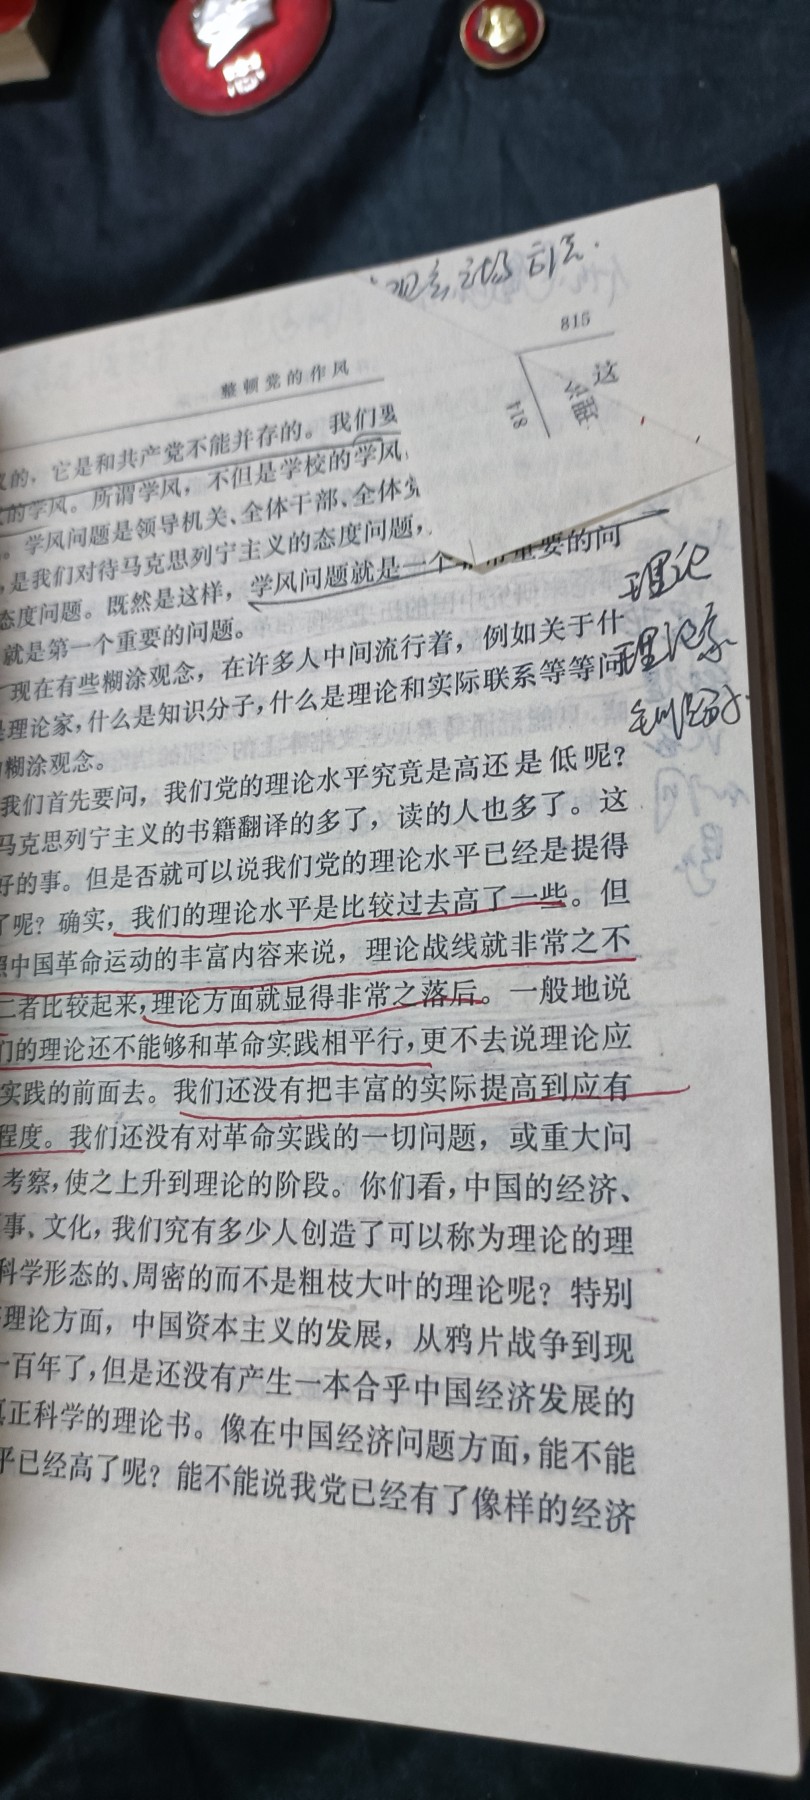 观点立场方法.
815
整顿党的作风
这
814
义的，它是和共产党不能并存的。我们要
的学风。所谓学风，不但是学校的学风
。学风问题是领导机关、全体干部、全体党
，是我们对待马克思列宁主义的态度问题，
态度问题。既然是这样，学风问题就是一个非常重要的问
就是第一个重要的问题。
理论
现在有些糊涂观念，在许多人中间流行着，例如关于什
理论家
是理论家，什么是知识分子，什么是理论和实际联系等等问
知识分子
糊涂观念。
我们首先要问，我们党的理论水平究竟是高还是低呢？
马克思列宁主义的书籍翻译的多了，读的人也多了。这
好的事。但是否就可以说我们党的理论水平已经是提得
了呢？确实，我们的理论水平是比较过去高了一些。但
照中国革命运动的丰富内容来说，理论战线就非常之不
二者比较起来，理论方面就显得非常之落后。一般地说
们的理论还不能够和革命实践相平行，更不去说理论应
实践的前面去。我们还没有把丰富的实际提高到应有
程度。我们还没有对革命实践的一切问题，或重大问
考察，使之上升到理论的阶段。你们看，中国的经济、
事、文化，我们究有多少人创造了可以称为理论的理
科学形态的、周密的而不是粗枝大叶的理论呢？特别
理论方面，中国资本主义的发展，从鸦片战争到现
一百年了，但是还没有产生一本合乎中国经济发展的
真正科学的理论书。像在中国经济问题方面，能不能
平已经高了呢？能不能说我党已经有了像样的经济